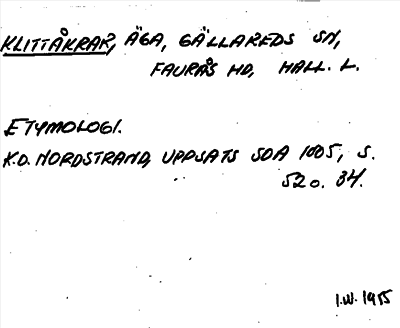 KLITTÅKRAR, ÄGA, GÄLLAREDS SN,
FAURÅS HD, HALL. L.
ETYMOLOGI.
K.D. NORDSTRAND, UPPSATS SOA 1005, S.
52 o. 34.
I.W. 1955